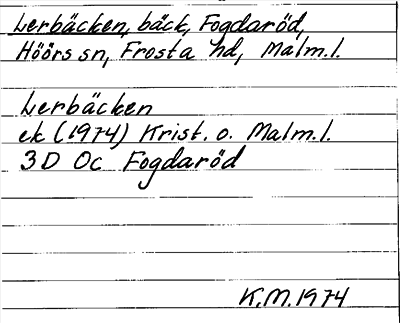 Lerbäcken, bäck, Fogdaröd,
Höörs sn, Frosta hd, Malm.l.
Lerbäcken
ek (1974) Krist. o. Malm.l.
3D Oc Fogdaröd
K.M.1974